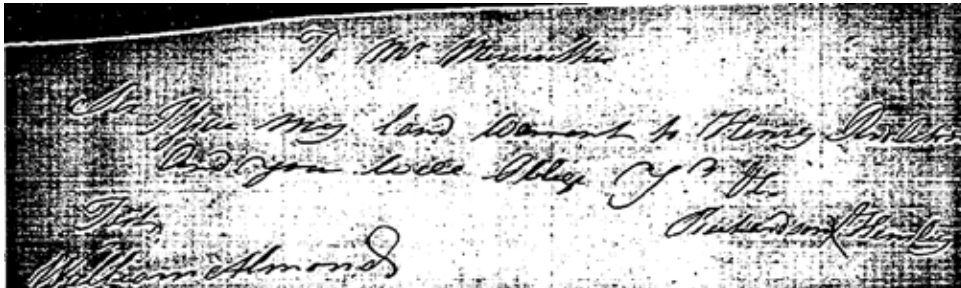 To Mr. Meriwether
Sir
Issue my land warrant to Henry
And you will Oblige Yr. H.
Richardson Henley
Test
William Almond